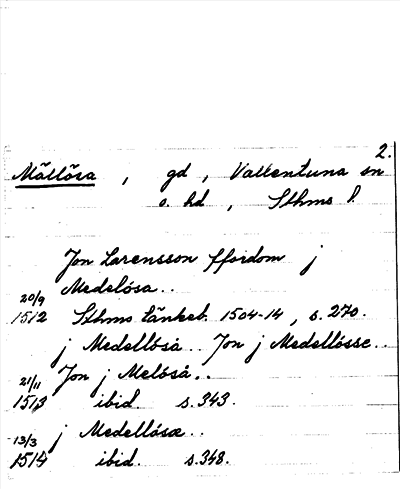 2.
Mällösa, gd, Vallentuna sn
o. hd, Sthms l.
Jon Larensson ffordom j
Medelösa..
20/9
1512 Sthms tänkeb. 1504-14, s. 270.
j Medellöså.. Jon j Medellösse..
21/11 Jon j Melöså..
1513 ibid s. 343.
13/3 j Medellösæ..
1514 ibid. s. 348.